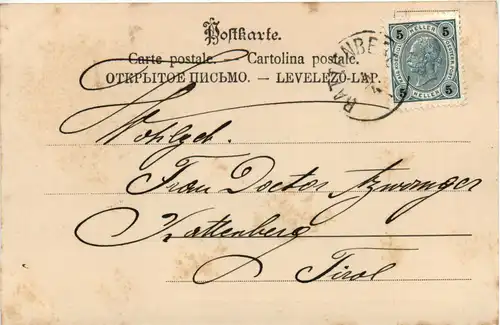 Postkarte.
Carte postale. Cartolina postale.
ОТКРЫТОЕ ПИСЬМО. — LEVELEZŐ-LAP.
5 HELLER 5
5 HELLER 5
RATTENBE
Wohlgeb.
Frau Doctor
Rattenberg
Tirol